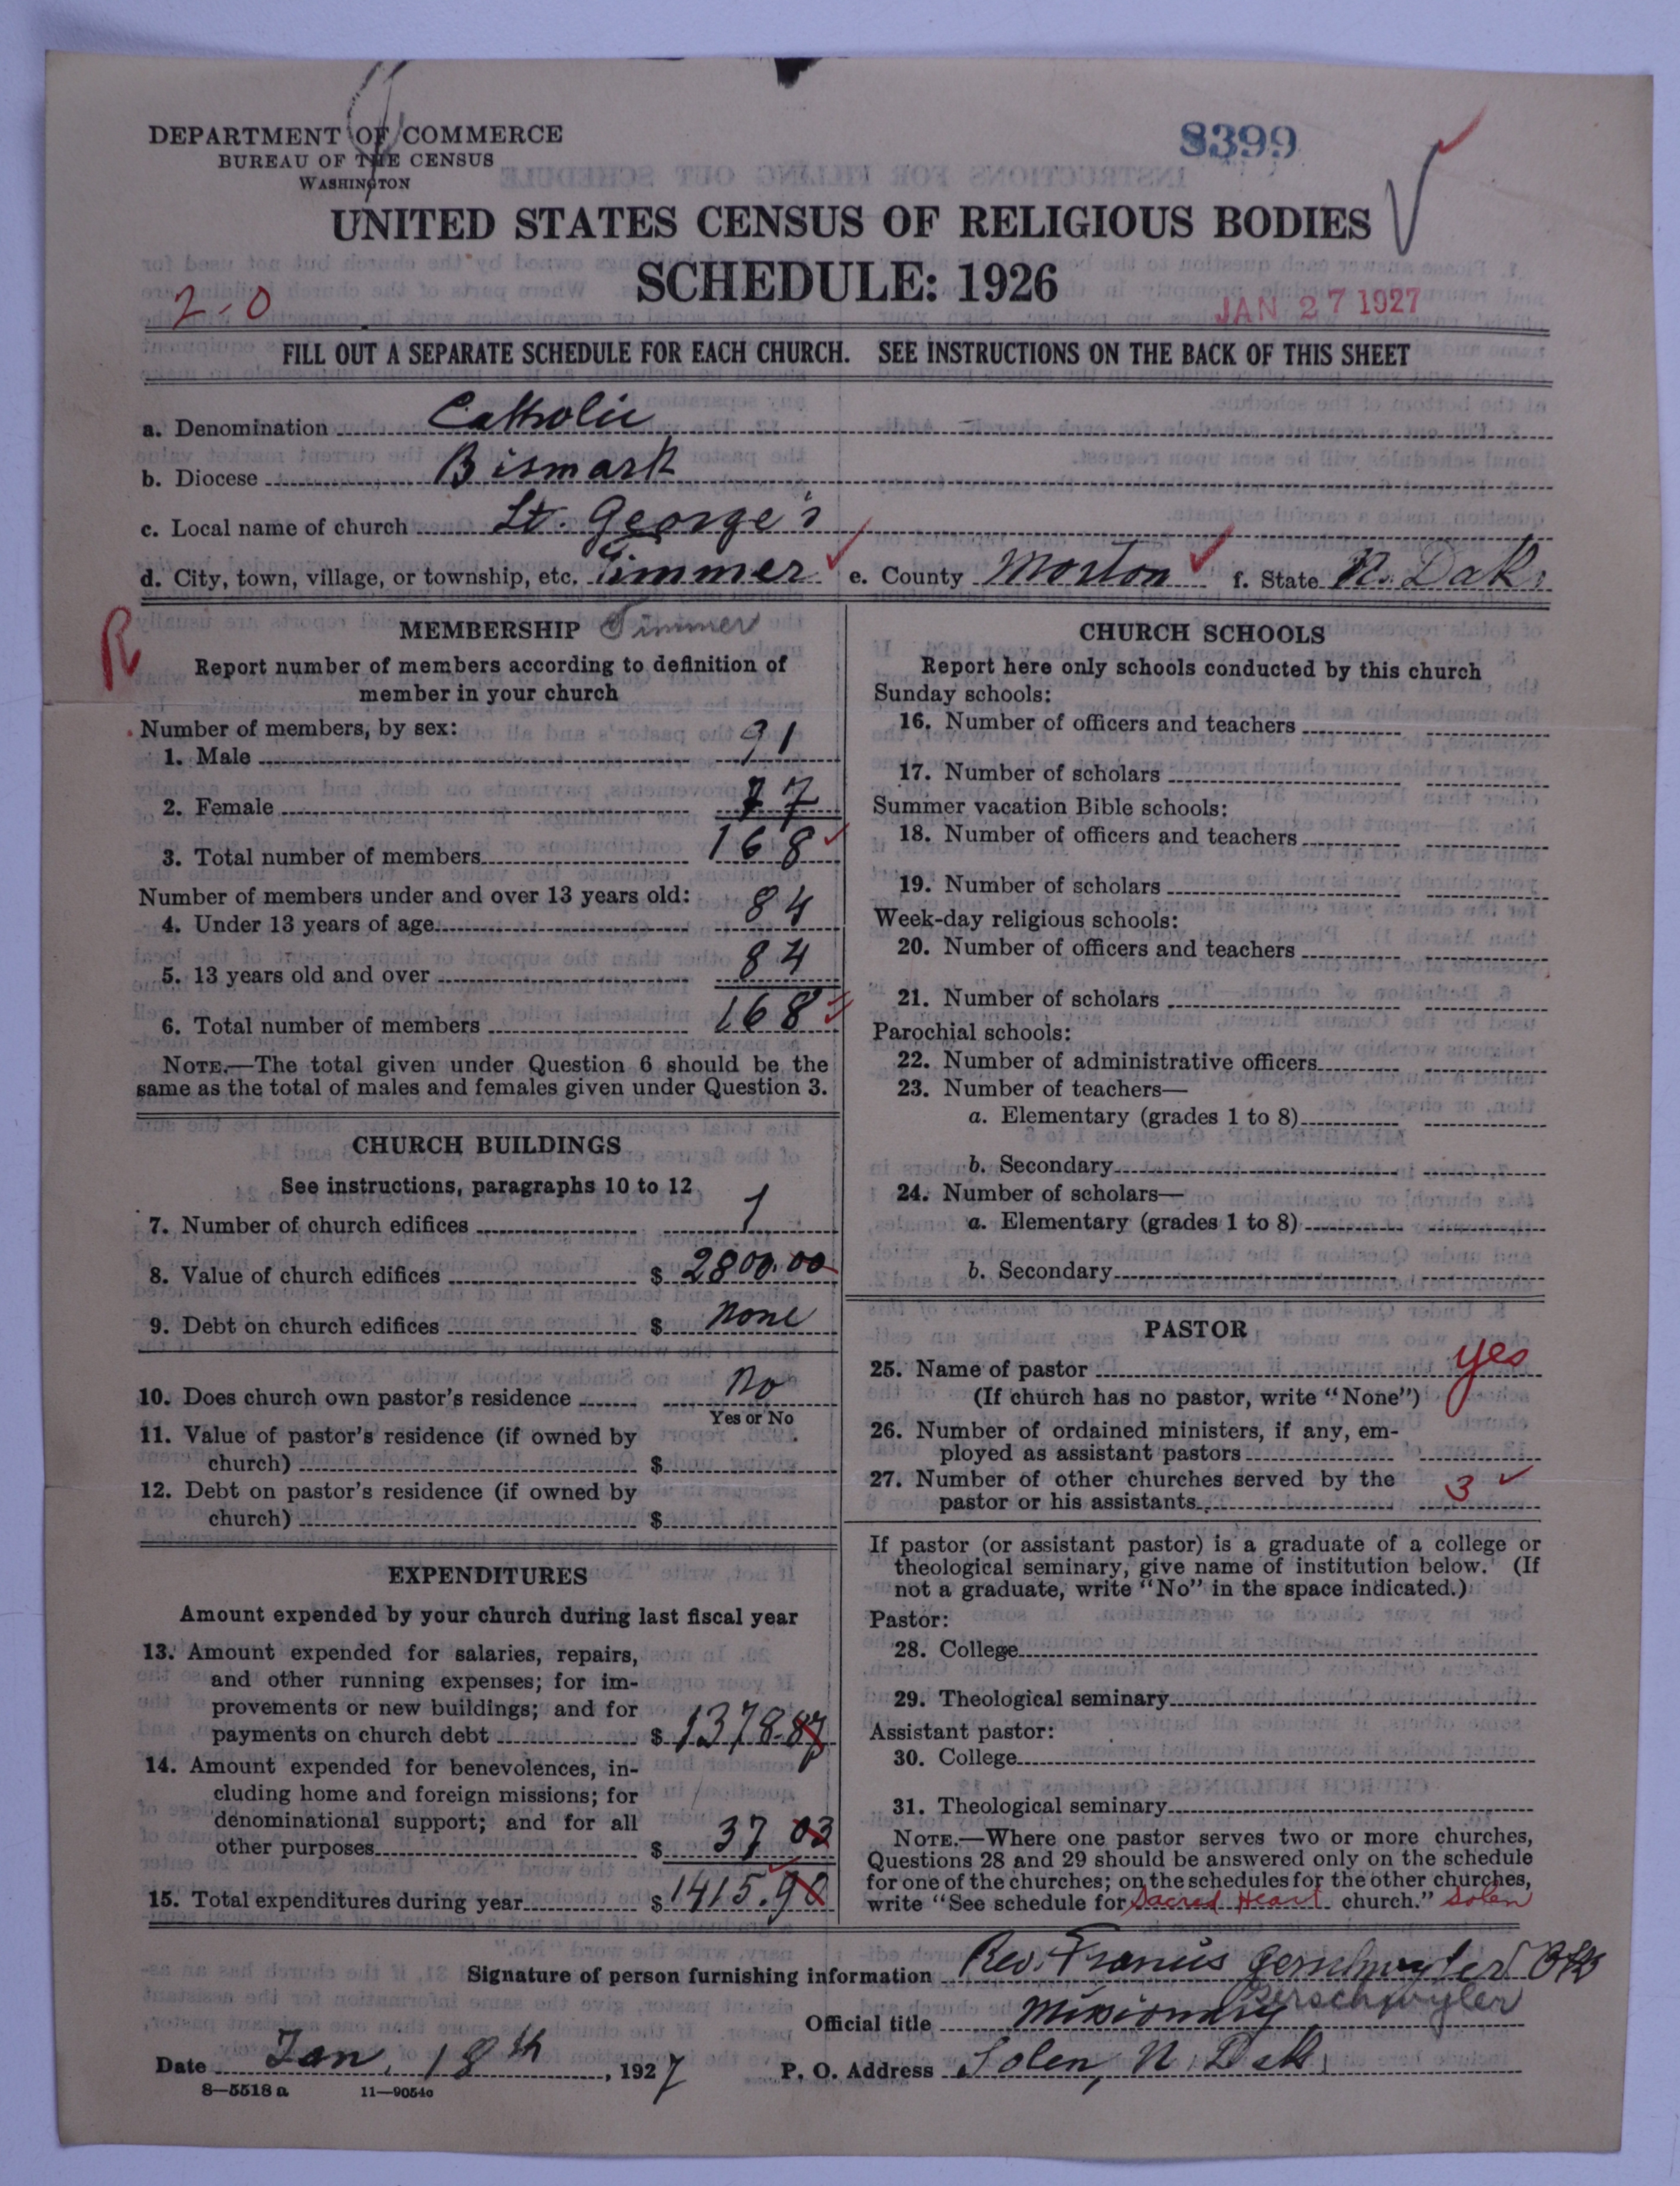 DEPARTMENT OF COMMERCE
BUREAU OF THE CENSUS
WASHINGTON
8399
UNITED STATES CENSUS OF RELIGIOUS BODIES
SCHEDULE: 1926
2-0
JAN 27 1927
FILL OUT A SEPARATE SCHEDULE FOR EACH CHURCH. SEE INSTRUCTIONS ON THE BACK OF THIS SHEET
a. Denomination Catholic
b. Diocese Bismark
c. Local name of church St. George's
d. City, town, village, or township, etc. Timmer e. County Morton f. State N. Dak.
R
MEMBERSHIP Timmer
Report number of members according to definition of
member in your church
Number of members, by sex:
1. Male 91
2. Female 77
3. Total number of members 168
Number of members under and over 13 years old:
4. Under 13 years of age 84
5. 13 years old and over 84
6. Total number of members 168
NOTE.—The total given under Question 6 should be the
same as the total of males and females given under Question 3.
CHURCH BUILDINGS
See instructions, paragraphs 10 to 12
7. Number of church edifices 1
8. Value of church edifices $ 2800.00
9. Debt on church edifices $ none
10. Does church own pastor's residence No
Yes or No
11. Value of pastor's residence (if owned by
church) $
12. Debt on pastor's residence (if owned by
church) $
EXPENDITURES
Amount expended by your church during last fiscal year
13. Amount expended for salaries, repairs,
and other running expenses; for im-
provements or new buildings; and for
payments on church debt $ 1378.87
14. Amount expended for benevolences, in-
cluding home and foreign missions; for
denominational support; and for all
other purposes $ 37 03
15. Total expenditures during year $ 1415.90
CHURCH SCHOOLS
Report here only schools conducted by this church
Sunday schools:
16. Number of officers and teachers
17. Number of scholars
Summer vacation Bible schools:
18. Number of officers and teachers
19. Number of scholars
Week-day religious schools:
20. Number of officers and teachers
21. Number of scholars
Parochial schools:
22. Number of administrative officers
23. Number of teachers—
a. Elementary (grades 1 to 8)
b. Secondary
24. Number of scholars—
a. Elementary (grades 1 to 8)
b. Secondary
PASTOR
25. Name of pastor yes
(If church has no pastor, write "None")
26. Number of ordained ministers, if any, em-
ployed as assistant pastors
27. Number of other churches served by the
pastor or his assistants 3
If pastor (or assistant pastor) is a graduate of a college or
theological seminary, give name of institution below. (If
not a graduate, write "No" in the space indicated.)
Pastor:
28. College
29. Theological seminary
Assistant pastor:
30. College
31. Theological seminary
NOTE.—Where one pastor serves two or more churches,
Questions 28 and 29 should be answered only on the schedule
for one of the churches; on the schedules for the other churches,
write "See schedule for Sacred Heart church." Solen
Signature of person furnishing information Rev. Francis Gerschwyler
Gerschwyler
Official title Missionary
Date Jan. 18th, 1927 P. O. Address Solen, N. Dak.
8—5518 a 11—9054o